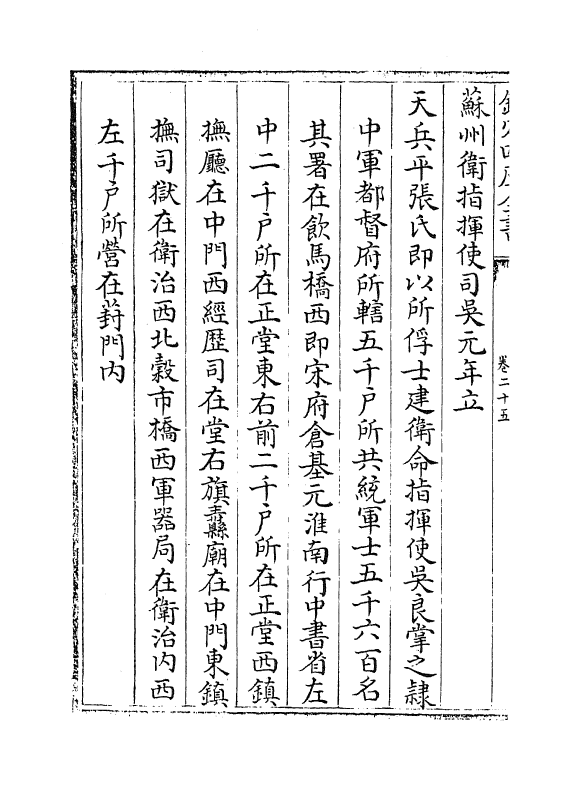 欽定四庫全書
卷二十五
蘇州衛指揮使司吳元年立
天兵平張氏即以所俘士建衛命指揮使吳良掌之隷
中軍都督府所轄五千户所共統軍士五千六百名
其署在飲馬橋西即宋府倉基元淮南行中書省左
中二千户所在正堂東右前二千户所在正堂西鎮
撫廳在中門西經歴司在堂右旗纛廟在中門東鎮
撫司獄在衛治西北糓市橋西軍器局在衛治内西
左千户所營在葑門内